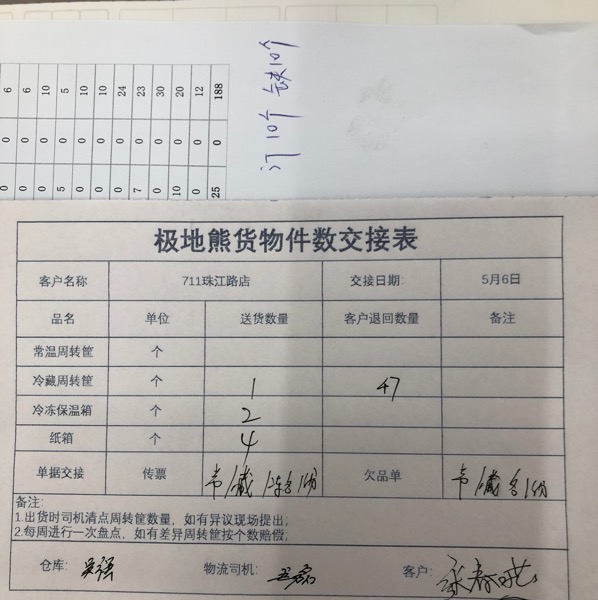 6 6 10 5 10 10 24 23 30 20 12 188
0 0 0 0 0 0 0 0 0 0 0 0
0 0 0 5 0 0 0 7 0 10 0 25
订10个 缺10个
极地熊货物件数交接表
客户名称 711珠江路店 交接日期: 5月6日
品名 单位 送货数量 客户退回数量 备注
常温周转筐 个
冷藏周转筐 个 1 47
冷冻保温箱 个 2
纸箱 个 4
单据交接 传票 常/藏/冻各1份 欠品单 常/藏各1份
备注:
1.出货时司机清点周转筐数量，如有异议现场提出;
2.每周进行一次盘点，如有差异周转筐按个数赔偿;
仓库: 吴强 物流司机: 客户: